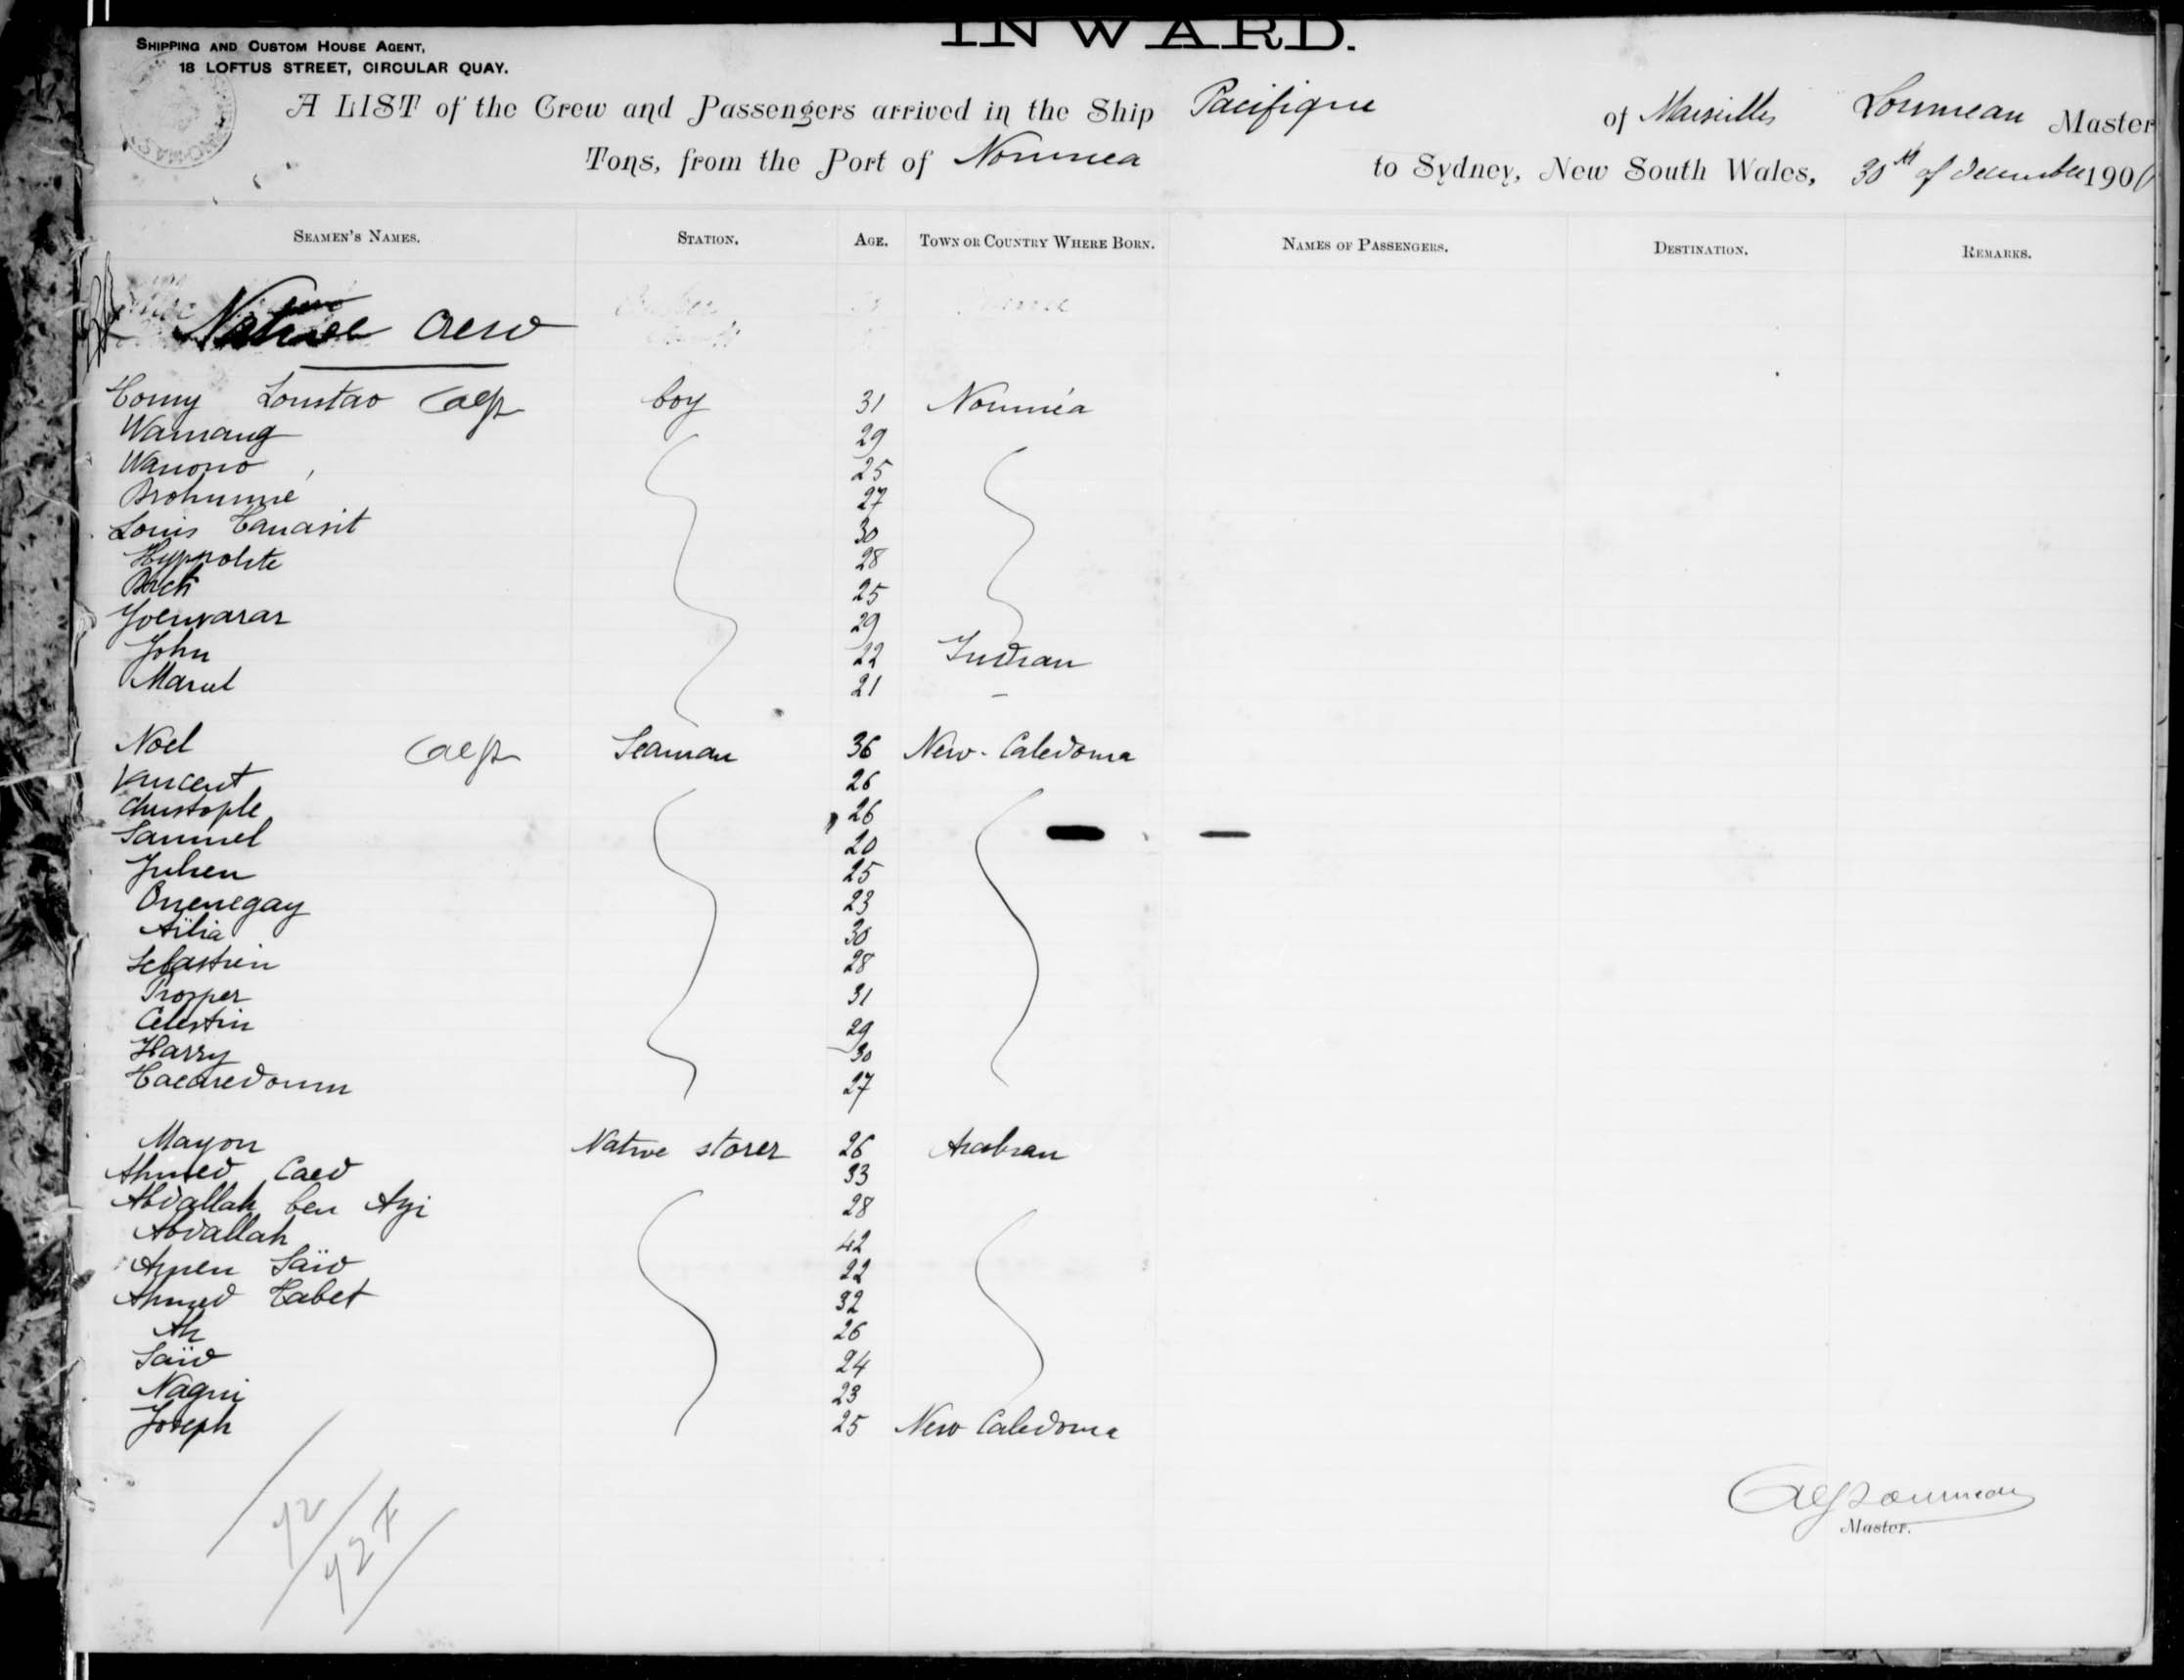 INWARD.
SHIPPING AND CUSTOM HOUSE AGENT,
18 LOFTUS STREET, CIRCULAR QUAY.
A LIST of the Crew and Passengers arrived in the Ship Pacifique of Marseilles Lourneau Master
Tons, from the Port of Noumea to Sydney, New South Wales, 30th of december 190
SEAMEN'S NAMES. STATION. AGE. TOWN OR COUNTRY WHERE BORN. NAMES OF PASSENGERS. DESTINATION. REMARKS.
Native Crew
Tomy Loustao boy 31 Nouméa
Wamang 29
Wanono 25
27
Louis 30
Hyppolite 28
25
29
John 22 Indian
Marcel 21
Noel Seaman 36 New-Caledonia
Vincent 26
Christophe 26
Samuel 20
Julien 25
Onenegay 23
Aïlia 30
Sebastien 28
Prosper 31
Celestin 29
Harry 30
27
Mayon Native storer 26 Arabian
Ahmed Caed 33
Abdallah ben Agi 28
Abdallah 42
Amen Saïd 22
Ahmed Tabet 32
Ali 26
Saïd 24
Nagui 23
Joseph 25 New Caledonia
72
72 F
Master.